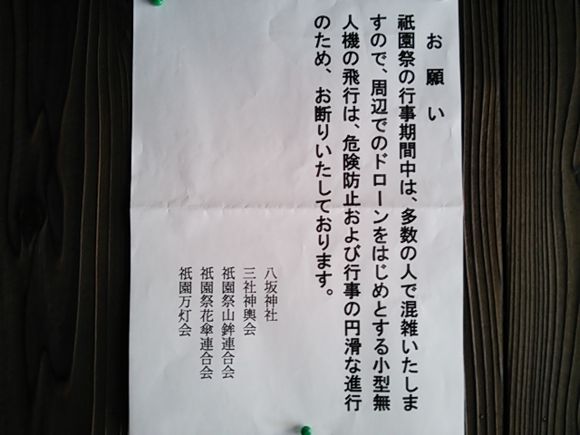 お願い
祇園祭の行事期間中は、多数の人で混雑いたしま
すので、周辺でのドローンをはじめとする小型無
人機の飛行は、危険防止および行事の円滑な進行
のため、お断りいたしております。
八坂神社
三社神輿会
祇園祭山鉾連合会
祇園祭花傘連合会
祇園万灯会